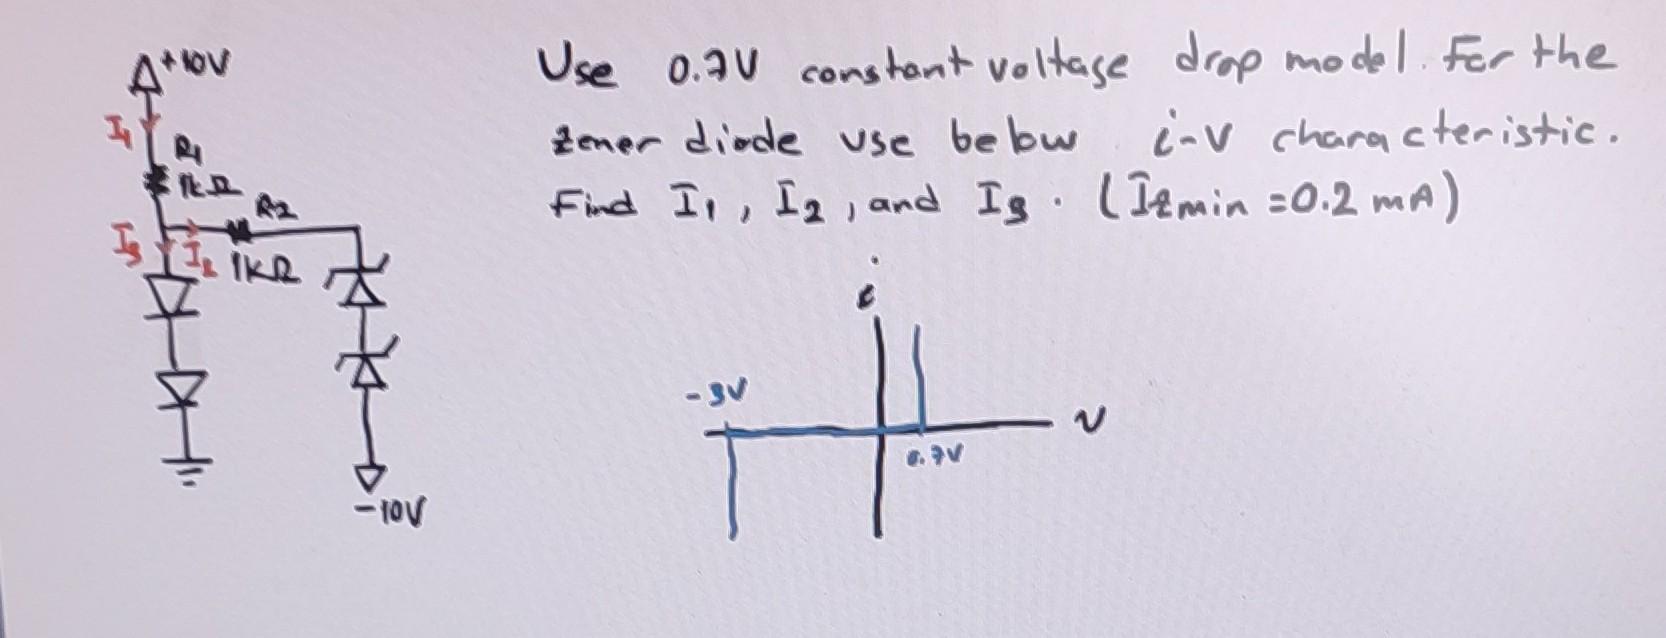 +10V
I1
R1
1kΩ
R2
I3
I2
1kΩ
-10V
Use 0.7V constant voltage drop model. For the
zener diode use below i-v characteristic.
Find I1, I2, and I3. (Izmin = 0.2 mA)
i
-3V
v
0.7V